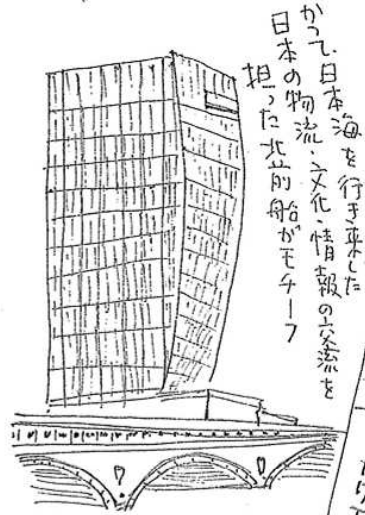 かつて、日本海を行き来した
日本の物流・文化・情報の交流を
担った北前船がモチーフ